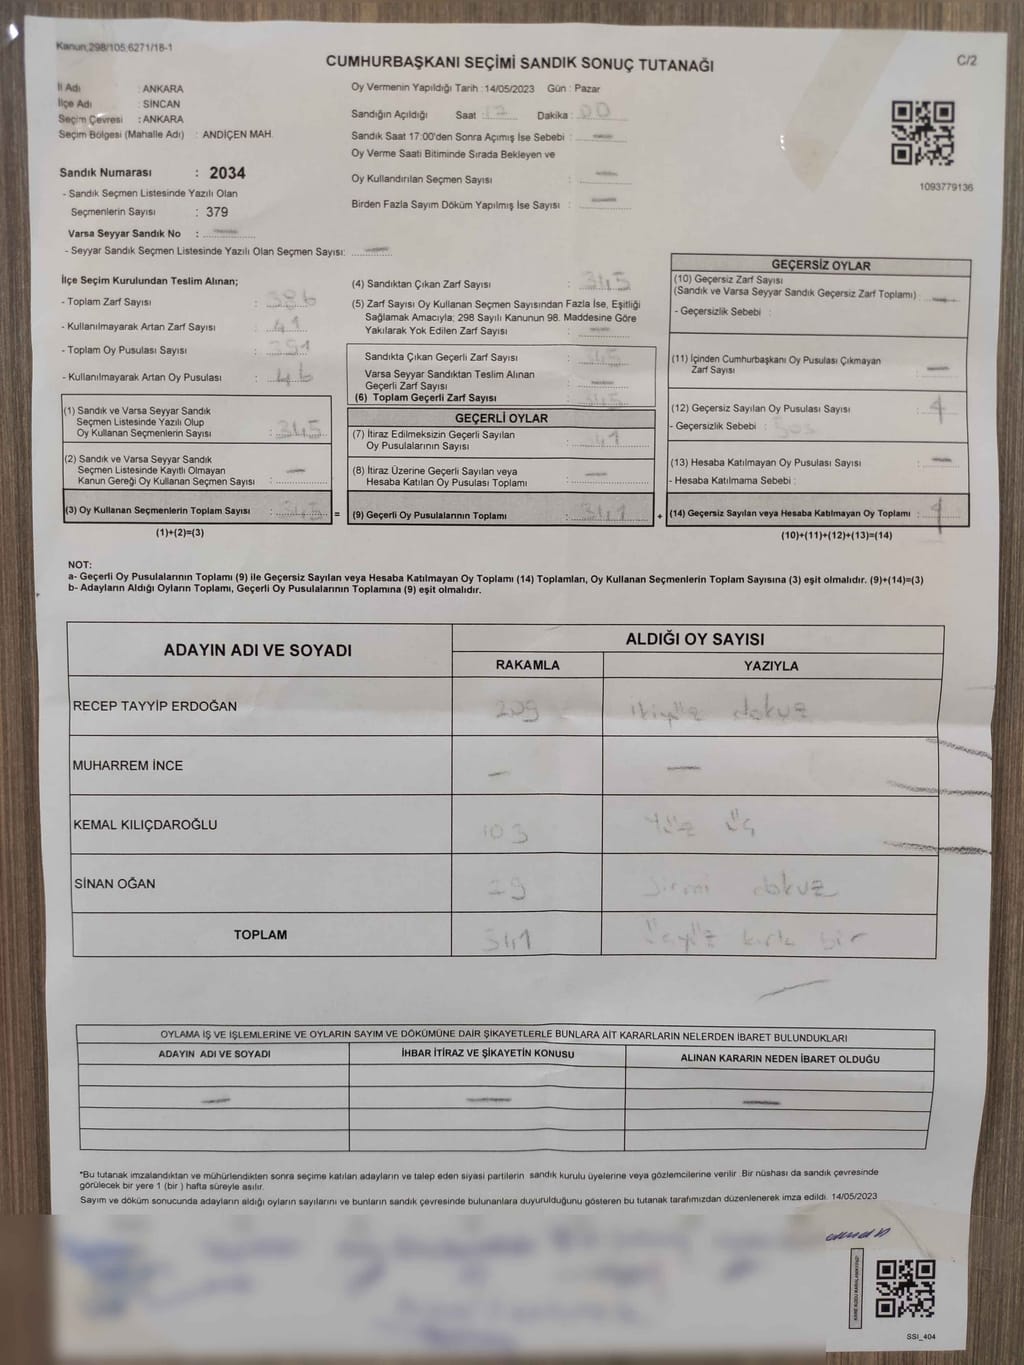 Kanun:298/105,6271/18-1
CUMHURBAŞKANI SEÇİMİ SANDIK SONUÇ TUTANAĞI
C/2
İl Adı : ANKARA
İlçe Adı : SİNCAN
Seçim Çevresi : ANKARA
Seçim Bölgesi (Mahalle Adı) : ANDİÇEN MAH.
Oy Vermenin Yapıldığı Tarih : 14/05/2023 Gün : Pazar
Sandığın Açıldığı Saat : 17 Dakika : 00
Sandık Saat 17:00'den Sonra Açımış İse Sebebi : —
Oy Verme Saati Bitiminde Sırada Bekleyen ve
Oy Kullandırılan Seçmen Sayısı : —
Birden Fazla Sayım Döküm Yapılmış İse Sayısı : —
1093779136
Sandık Numarası : 2034
- Sandık Seçmen Listesinde Yazılı Olan
Seçmenlerin Sayısı : 379
Varsa Seyyar Sandık No : —
- Seyyar Sandık Seçmen Listesinde Yazılı Olan Seçmen Sayısı: —
İlçe Seçim Kurulundan Teslim Alınan;
- Toplam Zarf Sayısı : 386
- Kullanılmayarak Artan Zarf Sayısı : 41
- Toplam Oy Pusulası Sayısı : 391
- Kullanılmayarak Artan Oy Pusulası : 46
(1) Sandık ve Varsa Seyyar Sandık
Seçmen Listesinde Yazılı Olup
Oy Kullanan Seçmenlerin Sayısı : 345
(2) Sandık ve Varsa Seyyar Sandık
Seçmen Listesinde Kayıtlı Olmayan
Kanun Gereği Oy Kullanan Seçmen Sayısı : —
(3) Oy Kullanan Seçmenlerin Toplam Sayısı : 345
(1)+(2)=(3)
=
(4) Sandıktan Çıkan Zarf Sayısı : 345
(5) Zarf Sayısı Oy Kullanan Seçmen Sayısından Fazla İse, Eşitliği
Sağlamak Amacıyla; 298 Sayılı Kanunun 98. Maddesine Göre
Yakılarak Yok Edilen Zarf Sayısı : —
Sandıkta Çıkan Geçerli Zarf Sayısı : 345
Varsa Seyyar Sandıktan Teslim Alınan
Geçerli Zarf Sayısı : —
(6) Toplam Geçerli Zarf Sayısı : 345
GEÇERLİ OYLAR
(7) İtiraz Edilmeksizin Geçerli Sayılan
Oy Pusulalarının Sayısı : 341
(8) İtiraz Üzerine Geçerli Sayılan veya
Hesaba Katılan Oy Pusulası Toplamı : —
(9) Geçerli Oy Pusulalarının Toplamı : 341
+
GEÇERSİZ OYLAR
(10) Geçersiz Zarf Sayısı
(Sandık ve Varsa Seyyar Sandık Geçersiz Zarf Toplamı) : —
- Geçersizlik Sebebi :
(11) İçinden Cumhurbaşkanı Oy Pusulası Çıkmayan
Zarf Sayısı : —
(12) Geçersiz Sayılan Oy Pusulası Sayısı : 4
- Geçersizlik Sebebi :
(13) Hesaba Katılmayan Oy Pusulası Sayısı : —
- Hesaba Katılmama Sebebi :
(14) Geçersiz Sayılan veya Hesaba Katılmayan Oy Toplamı : 4
(10)+(11)+(12)+(13)=(14)
NOT:
a- Geçerli Oy Pusulalarının Toplamı (9) ile Geçersiz Sayılan veya Hesaba Katılmayan Oy Toplamı (14) Toplamları, Oy Kullanan Seçmenlerin Toplam Sayısına (3) eşit olmalıdır. (9)+(14)=(3)
b- Adayların Aldığı Oyların Toplamı, Geçerli Oy Pusulalarının Toplamına (9) eşit olmalıdır.
ADAYIN ADI VE SOYADI
ALDIĞI OY SAYISI
RAKAMLA YAZIYLA
RECEP TAYYİP ERDOĞAN 209 ikiyüz dokuz
MUHARREM İNCE — —
KEMAL KILIÇDAROĞLU 103 Yüz üç
SİNAN OĞAN 29 yirmi dokuz
TOPLAM 341 üçyüz kırk bir
OYLAMA İŞ VE İŞLEMLERİNE VE OYLARIN SAYIM VE DÖKÜMÜNE DAİR ŞİKAYETLERLE BUNLARA AİT KARARLARIN NELERDEN İBARET BULUNDUKLARI
ADAYIN ADI VE SOYADI İHBAR İTİRAZ VE ŞİKAYETİN KONUSU ALINAN KARARIN NEDEN İBARET OLDUĞU
— — —
*Bu tutanak imzalandıktan ve mühürlendikten sonra seçime katılan adayların ve talep eden siyasi partilerin sandık kurulu üyelerine veya gözlemcilerine verilir .Bir nüshası da sandık çevresinde
görülecek bir yere 1 (bir ) hafta süreyle asılır.
Sayım ve döküm sonucunda adayların aldığı oyların sayılarını ve bunların sandık çevresinde bulunanlara duyurulduğunu gösteren bu tutanak tarafımızdan düzenlenerek imza edildi. 14/05/2023
SSI_404